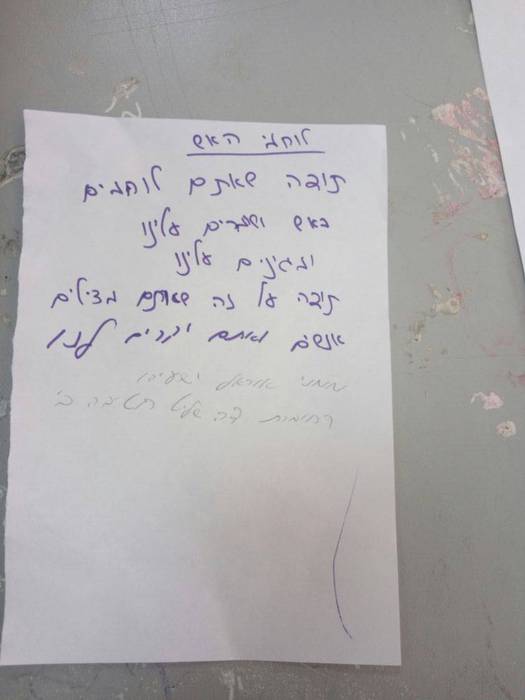 לוחמי האש
תודה שאתם לוחמים
באש ושומרים עלינו
ומגינים עלינו
תודה על זה שאתם מצילים
אנשים ואתם יקרים לנו
ממני אוראל ישעיהו
רחובות